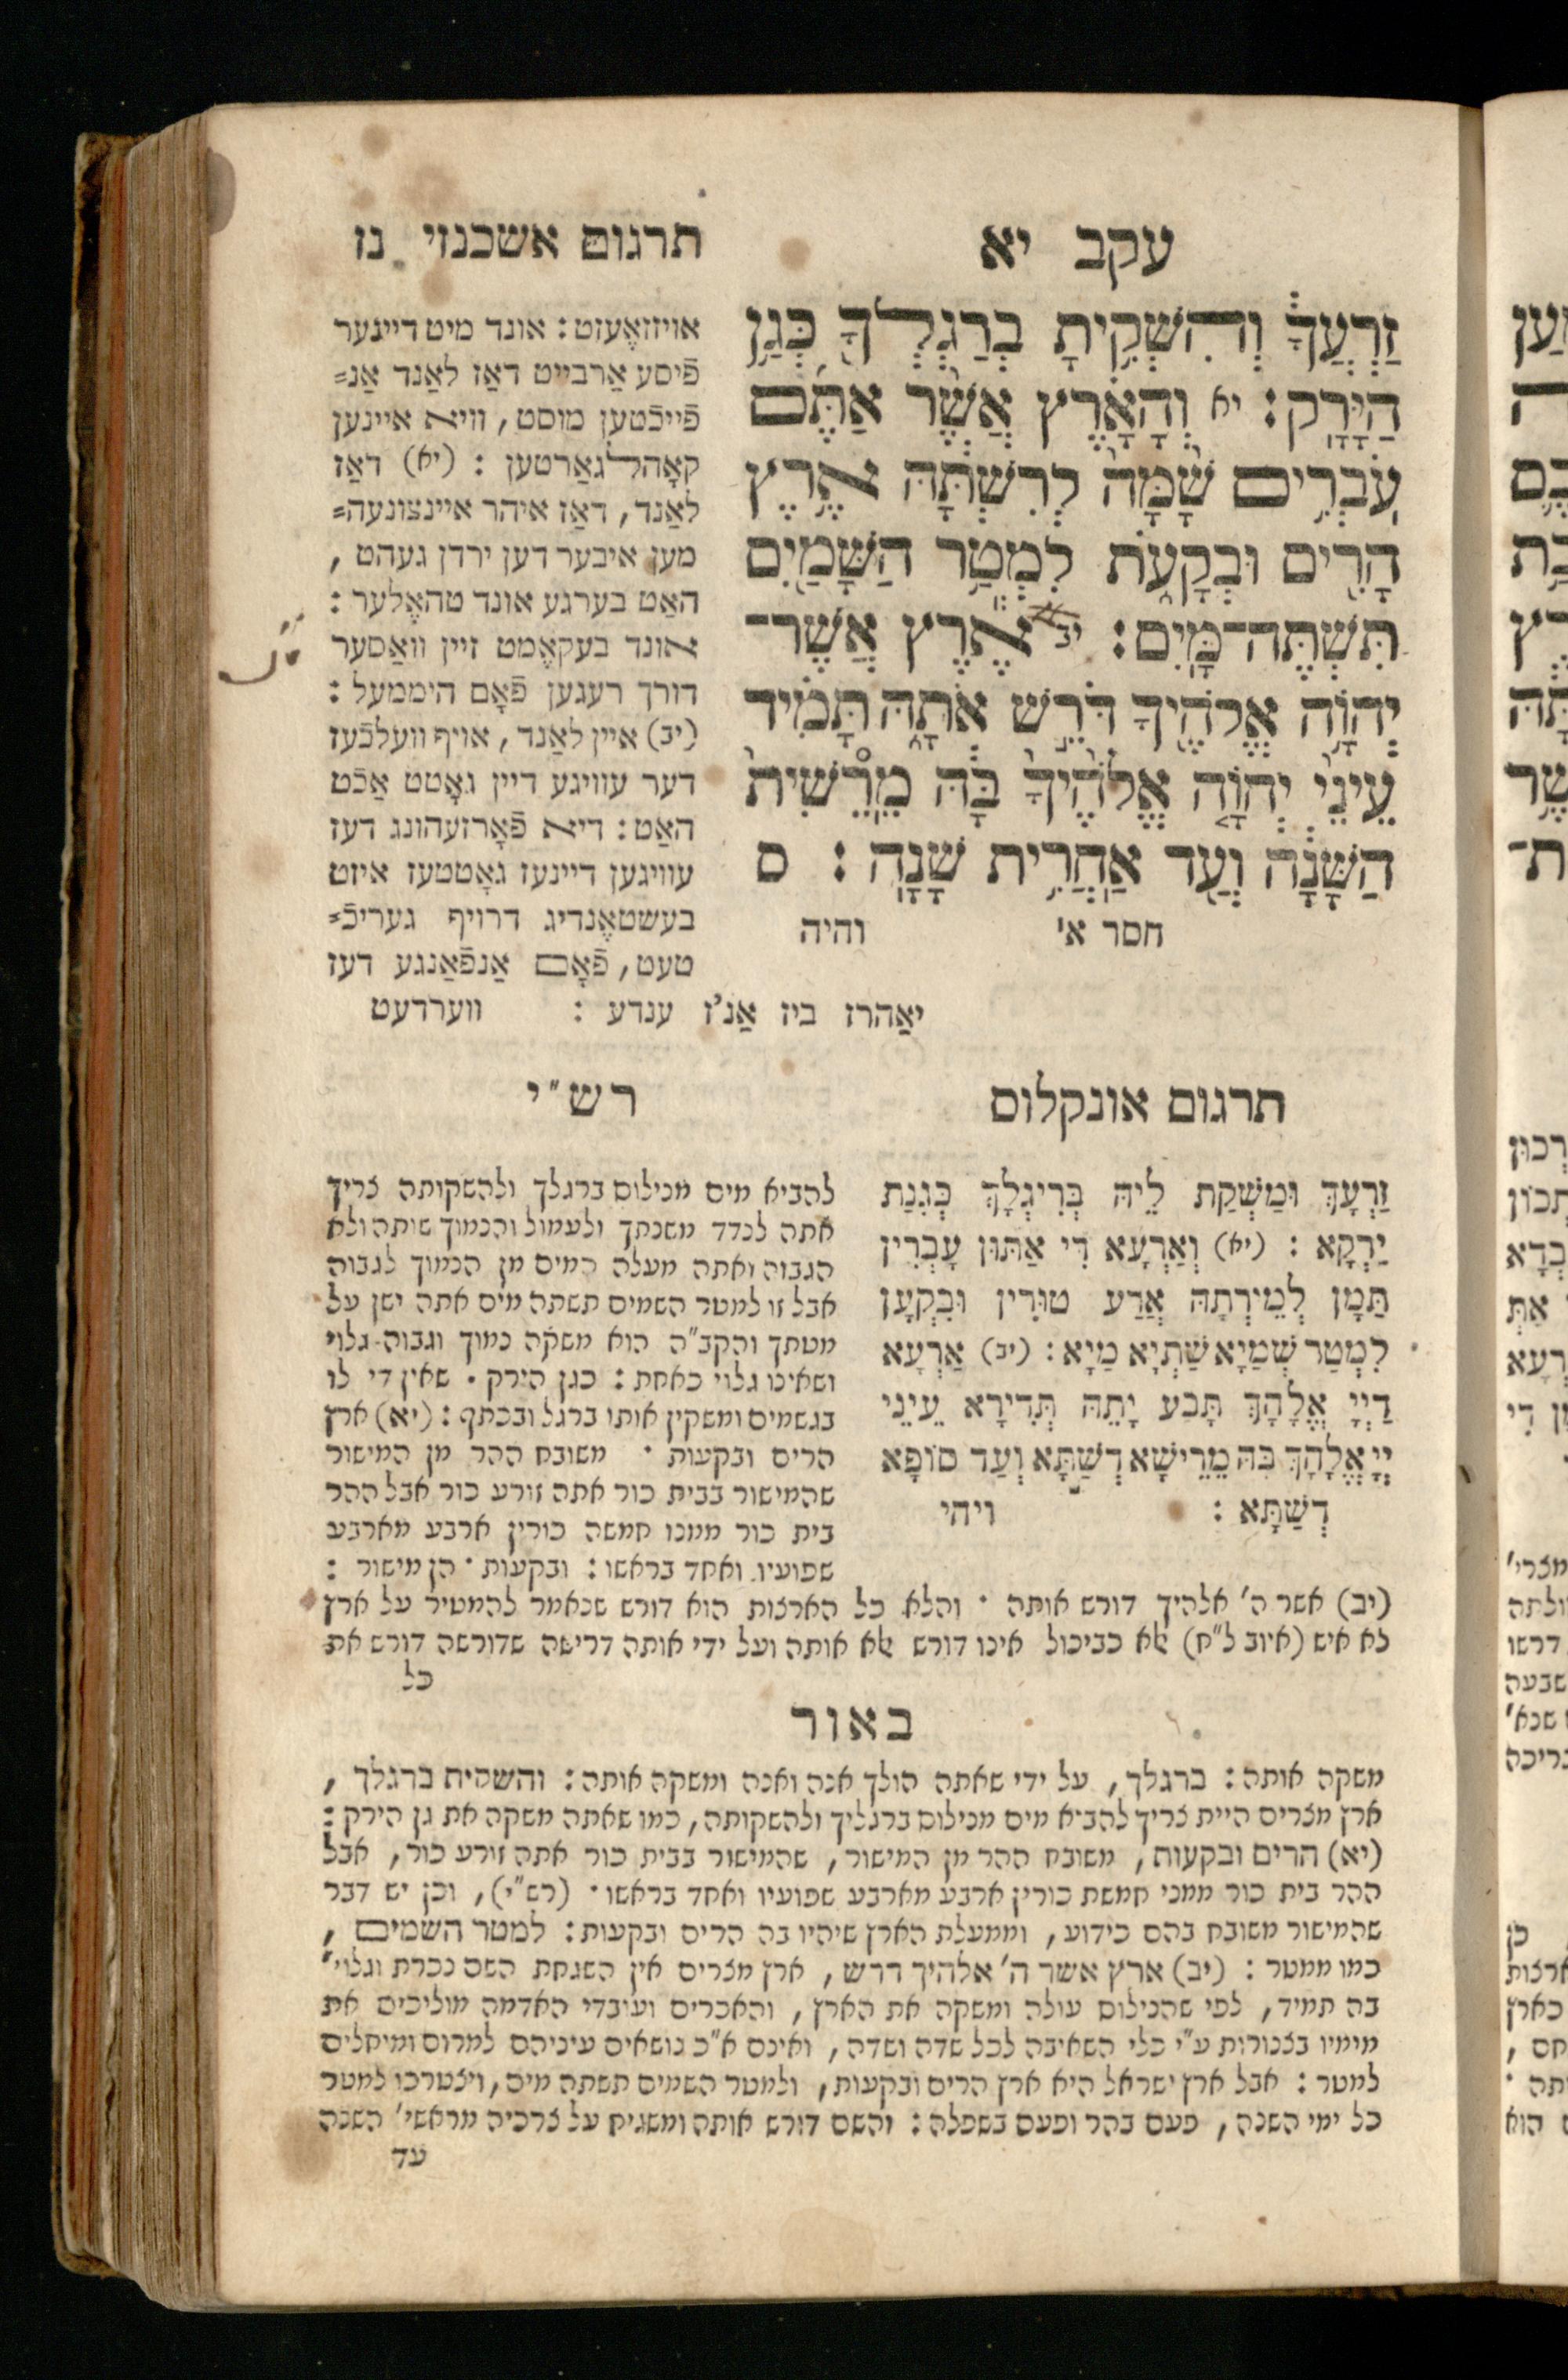 עקב יא
תרגום אשכנזי נז
זַרְעֲךָ֔ וְהִשְׁקִ֥יתָ בְרַגְלְךָ֖ כְּגַ֥ן
הַיָּרָֽק׃ יא וְהָאָ֗רֶץ אֲשֶׁ֨ר אַתֶּ֜ם
עֹבְרִ֥ים שָׁ֙מָּה֙ לְרִשְׁתָּ֔הּ אֶ֥רֶץ
הָרִ֖ים וּבְקָעֹ֑ת לִמְטַ֥ר הַשָּׁמַ֖יִם
תִּשְׁתֶּה־מָּֽיִם׃ יב אֶ֕רֶץ אֲשֶׁר־
יְהוָ֥ה אֱלֹהֶ֖יךָ דֹּרֵ֣שׁ אֹתָ֑הּ תָּמִ֗יד
עֵינֵ֨י יְהוָ֤ה אֱלֹהֶ֙יךָ֙ בָּ֔הּ מֵֽרֵשִׁית֙
הַשָּׁנָ֔ה וְעַ֖ד אַחֲרִ֥ית שָׁנָֽה׃ ס
חסר א' והיה
אויזזאֶעזט: אונד מיט דיינער
פֿיסע אַרבייט דאַז לאַנד אַנ=
פֿייכֿטען מוסט, וויא איינען
קאָהלגאַרטען : (יא) דאַז
לאַנד, דאַז איהר איינצונעה=
מען איבער דען ירדן געהט,
האַט בערגע אונד טהאֶלער:
אונד בעקאֶמט זיין וואַסער
דורך רעגען פֿאָם היממעל:
(יב) איין לאַנד, אויף וועלכֿעז
דער עוויגע דיין גאָטט אַכֿט
האַט: דיא פֿאָרזעהונג דעז
עוויגען דיינעז גאָטטעז איזט
בעשטאֶנדיג דרויף געריכֿ=
טעט, פֿאָם אַנפֿאַנגע דעז
יאַהרז ביז אַנ'ז ענדע : ווערדעט
תרגום אונקלוס
זַרְעָךְ וּמַשְׁקַת לֵיהּ בְּרִיגְלָךְ כְּגִנַת
יַרְקָא : (יא) וְאַרְעָא דִי אַתּוּן עָבְרִין
תַּמָן לְמֵירְתָהּ אֲרַע טוּרִין וּבִקְעָן
לִמְטַר שְׁמַיָא שַׁתְיָא מַיָא: (יב) אַרְעָא
דַיְיָ אֱלָהָךְ תָּבַע יָתֵהּ תְּדִירָא עֵינֵי
יְיָ אֱלָהָךְ בַּהּ מֵרֵישָׁא דְשַׁתָּא וְעַד סוֹפָא
דְשַׁתָּא : ויהי
רש"י
להביא מים מנילוס ברגלך ולהשקותה צריך
אתה לנדד משנתך ולעמול והנמוך שותה ולא
הגבוה ואתה מעלה המים מן הנמוך לגבוה
אבל זו למטר השמים תשתה מים אתה ישן על
מטתך והקב"ה הוא משקה נמוך וגבוה גלוי
ושאינו גלוי כאחת : כגן הירק . שאין די לו
בגשמים ומשקין אותו ברגל ובכתף : (יא) ארץ
הרים ובקעות . משובח ההר מן המישור
שהמישור בבית כור אתה זורע כור אבל ההר
בית כור ממנו חמשה כורין ארבע מארבע
שפועיו ואחד בראשו : ובקעות . הן מישור :
(יב) אשר ה' אלהיך דורש אותה . והלא כל הארצות הוא דורש שנאמר להמטיר על ארץ
לא איש (איוב ל"ח) אלא כביכול אינו דורש אלא אותה ועל ידי אותה דרישה שדורשה דורש את
כל
באור
משקה אותה: ברגלך, על ידי שאתה הולך אנה ואנה ומשקה אותה: והשקית ברגלך,
ארץ מצרים היית צריך להביא מים מנילוס ברגליך ולהשקותה, כמו שאתה משקה את גן הירק:
(יא) הרים ובקעות, משובח ההר מן המישור, שהמישור בבית כור אתה זורע כור, אבל
ההר בית כור ממנו חמשת כורין ארבע מארבע שפועיו ואחד בראשו . (רש"י), וכן יש דבר
שהמישור משובח בהם כידוע, וממעלת הארץ שיהיו בה הרים ובקעות: למטר השמים,
כמו ממטר : (יב) ארץ אשר ה' אלהיך דרש, ארץ מצרים אין השגחת השם נכרת וגלוי'
בה תמיד, לפי שהנילוס עולה ומשקה את הארץ, והאכרים ועובדי האדמה מוליכים את
מימיו בצנורות ע"י כלי השאיבה לכל שדה ושדה, ואינם א"כ נושאים עיניהם למרום ומיחלים
למטר : אבל ארץ ישראל היא ארץ הרים ובקעות, ולמטר השמים תשתה מים, ויצטרכו למטר
כל ימי השנה, פעם בהר ופעם בשפלה: והשם דורש אותה ומשגיח על צרכיה מראשי' השנה
עד